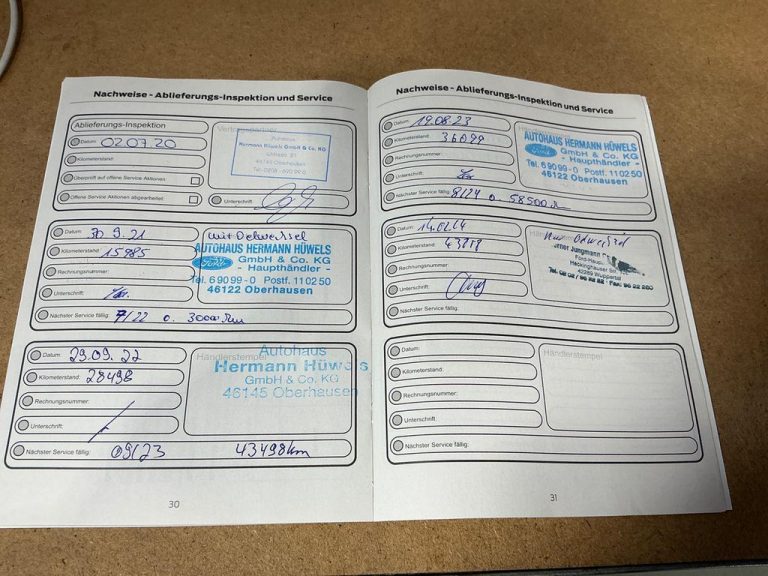 Nachweise - Ablieferungs-Inspektion und Service
Ablieferungs-Inspektion
Datum: 02.07.20
Kilometerstand:
Überprüft auf offene Service Aktionen:
Offene Service Aktionen abgearbeitet:
Vertragspartner
Autohaus
Hermann Hüwels GmbH & Co. KG
Unterschrift:
Datum: 30 9.21
Kilometerstand: 15985
Rechnungsnummer:
Unterschrift:
Nächster Service fällig: 7/22 o. 30000 km
mit Oelwechsel
AUTOHAUS HERMANN HÜWELS
Ford
GmbH & Co. KG
- Haupthändler -
Tel. 6 90 99-0 Postf. 11 02 50
46122 Oberhausen
Datum: 29.09.22
Kilometerstand: 28498
Rechnungsnummer:
Unterschrift:
Nächster Service fällig: 09/23 43498km
Händlerstempel
Autohaus
Hermann Hüwels
GmbH & Co. KG
46145 Oberhausen
30
Nachweise - Ablieferungs-Inspektion und Service
Datum: 19.08.23
Kilometerstand: 36099
Rechnungsnummer:
Unterschrift:
Nächster Service fällig: 8/24 o. 58500 km
AUTOHAUS HERMANN HÜWELS
Ford
GmbH & Co. KG
- Haupthändler -
Tel. 6 90 99-0 Postf. 11 02 50
46122 Oberhausen
Datum:
Kilometerstand:
Rechnungsnummer:
Unterschrift:
Nächster Service fällig:
Jungmann
Heckinghauser
42289 Wuppertal
Datum:
Kilometerstand:
Rechnungsnummer:
Unterschrift:
Nächster Service fällig:
Händlerstempel
31